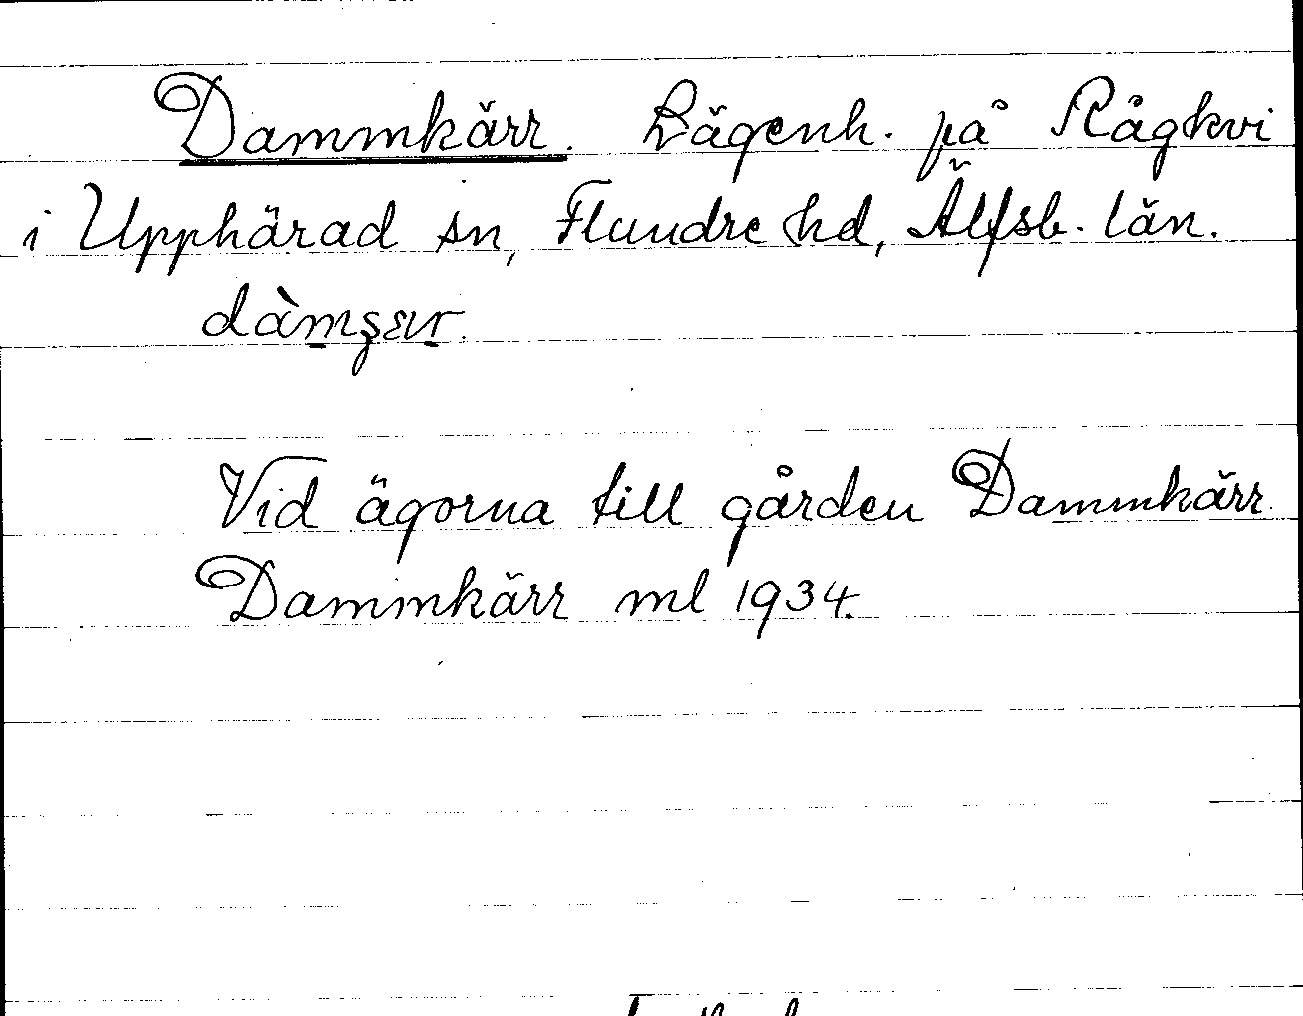 Dammkärr. Lägenh. på Rågkvi
i Upphärad sn, Flundre hd, Älfsb. län.
dàmʂær.
Vid ägorna till gården Dammkärr.
Dammkärr ml 1934.